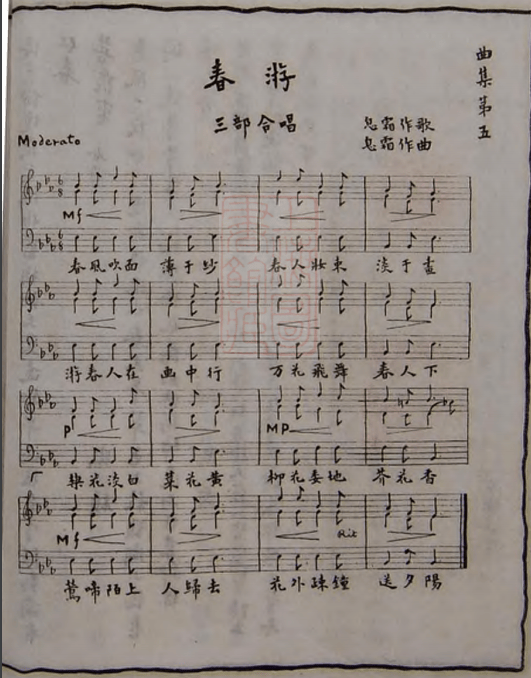 曲集第五
春游
三部合唱
息霜作歌
息霜作曲
Moderato
Mf
春風吹面 薄于紗 春人妝束 淡于畫
游春人在 画中行 万花飛舞 春人下
P MP
梨花淡白 菜花黄 柳花委地 芥花香
Mf Rit
鶯啼陌上 人歸去 花外疎鐘 送夕陽